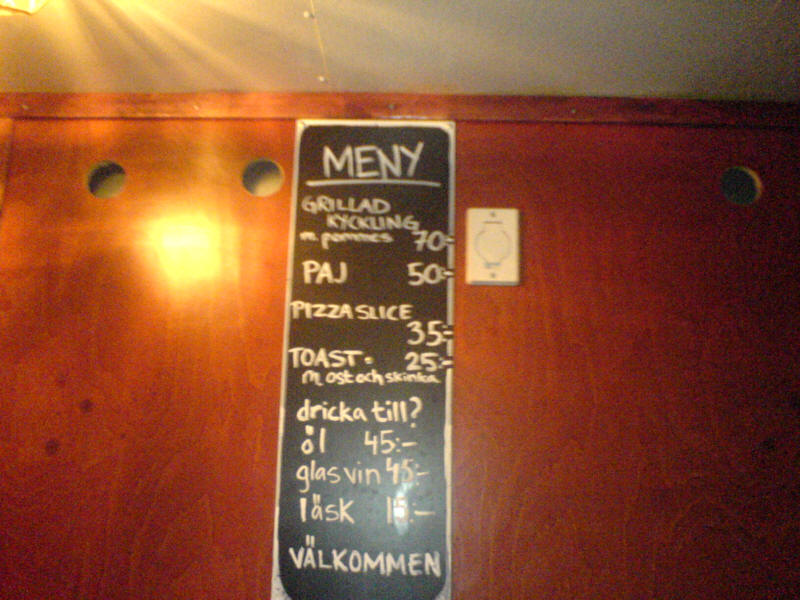 MENY
GRILLAD
KYCKLING
m. pommes 70:-
PAJ 50:-
PIZZA SLICE
35:-
TOAST 25:-
m. ost och skinka
dricka till?
öl 45:-
glas vin 45:-
läsk
VÄLKOMMEN